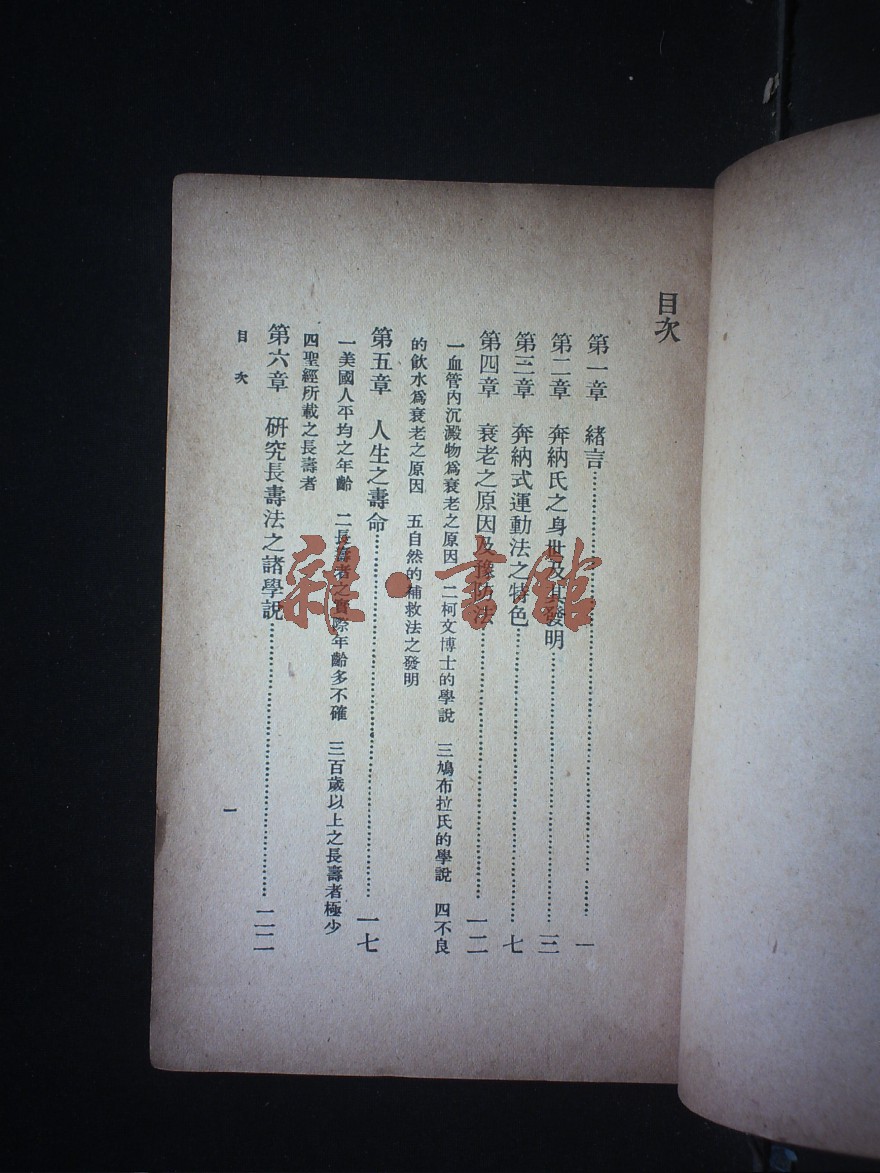 目次
第一章　緒言……一
第二章　奔納氏之身世及其發明……三
第三章　奔納式運動法之特色……七
第四章　衰老之原因及豫防法……一二
一血管內沉澱物爲衰老之原因　二柯文博士的學說　三鳩布拉氏的學說　四不良
的飲水爲衰老之原因　五自然的補救法之發明
第五章　人生之壽命……一七
一美國人平均之年齡　二長壽者之實際年齡多不確　三百歲以上之長壽者極少
四聖經所載之長壽者
第六章　研究長壽法之諸學說……二二
目次
一
雜·書館